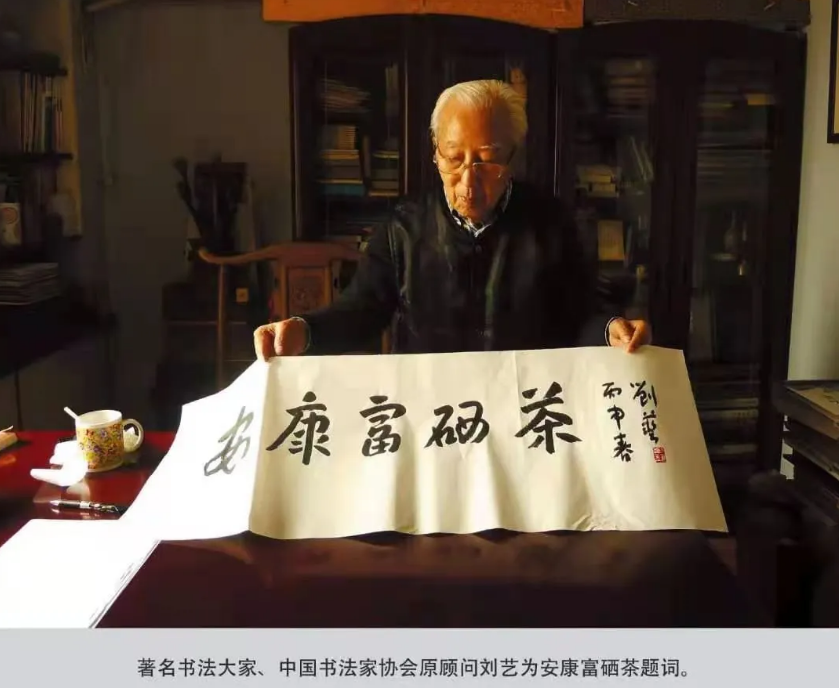 安康富硒茶
劉藝
丙申春
著名书法大家、中国书法家协会原顾问刘艺为安康富硒茶题词。